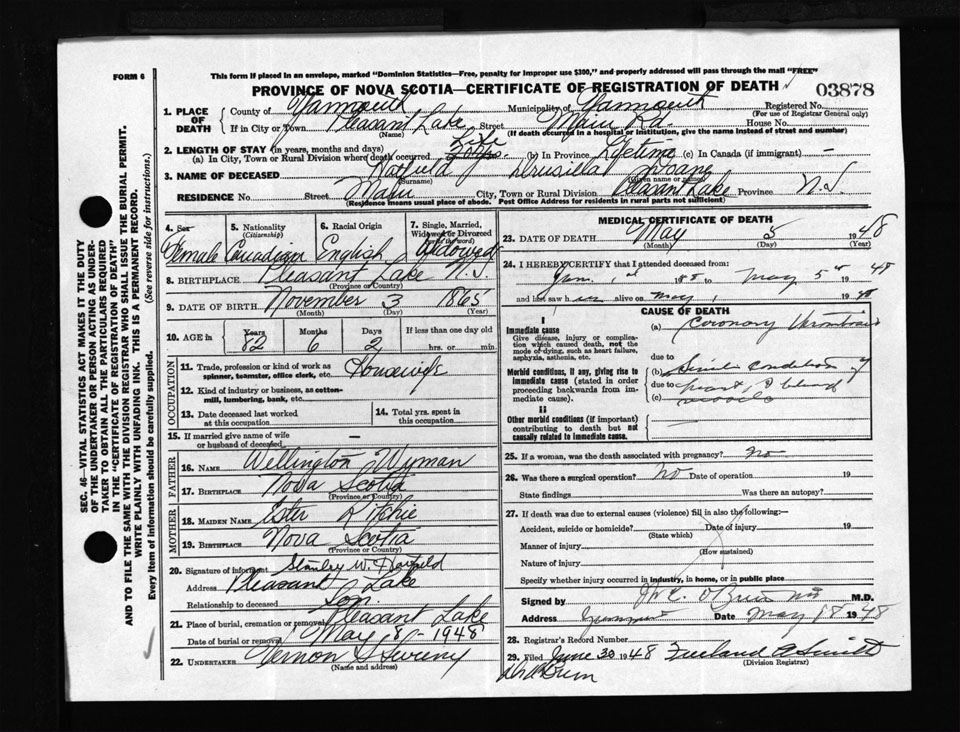 FORM 6
This form if placed in an envelope, marked "Dominion Statistics—Free, penalty for improper use $300," and properly addressed will pass through the mail "FREE"
PROVINCE OF NOVA SCOTIA—CERTIFICATE OF REGISTRATION OF DEATH
03878
1. PLACE OF DEATH
County of Yarmouth Municipality of Yarmouth Registered No.
(For use of Registrar General only)
If in City or Town Pleasant Lake Street Main Rd. House No.
(Name) (If death occurred in a hospital or institution, give the name instead of street and number)
2. LENGTH OF STAY (in years, months and days) Life
(a) In City, Town or Rural Division where death occurred (b) In Province Lifetime (c) In Canada (if immigrant) —
3. NAME OF DECEASED Hatfield Drusilla Doane
(Surname) (Given name or names)
RESIDENCE No. Street Main City, Town or Rural Division Pleasant Lake Province N.S.
(Residence means usual place of abode. Post Office Address for residents in rural parts not sufficient)
4. Sex 5. Nationality 6. Racial Origin 7. Single, Married, Widowed or Divorced
(Citizenship) (write the word)
Female Canadian English Widowed
8. BIRTHPLACE Pleasant Lake N.S.
(Province or Country)
9. DATE OF BIRTH November 3 1865
(Month) (Day) (Year)
10. AGE in Years Months Days If less than one day old
82 6 2 hrs. or min.
OCCUPATION
11. Trade, profession or kind of work as spinner, teamster, office clerk, etc. Housewife
12. Kind of industry or business, as cotton-mill, lumbering, bank, etc.
13. Date deceased last worked at this occupation
14. Total yrs. spent in this occupation
15. If married give name of wife or husband of deceased —
FATHER
16. NAME Wellington Wyman
17. BIRTHPLACE Nova Scotia
(Province or Country)
MOTHER
18. MAIDEN NAME Ester Ritchie
19. BIRTHPLACE Nova Scotia
(Province or Country)
20. Signature of informant Stanley W. Hatfield
Address Pleasant Lake
Relationship to deceased Son
21. Place of burial, cremation or removal Pleasant Lake
Date of burial or removal May 8 - 1948
22. UNDERTAKER Vernon Sweeny
(Name and address)
MEDICAL CERTIFICATE OF DEATH
23. DATE OF DEATH May 5 1948
(Month) (Day) (Year)
24. I HEREBY CERTIFY that I attended deceased from:
Jan. to May 5 1948
and last saw h alive on May 1948
CAUSE OF DEATH
I
Immediate cause (a) Coronary thrombosis
Give disease, injury or complication which caused death, not the mode of dying, such as heart failure, asphyxia, asthenia, etc.
due to
Morbid conditions, if any, giving rise to immediate cause (stated in order proceeding backwards from immediate cause).
(b) Senile condition of
due to heart & blood
(c) vessels
II
Other morbid conditions (if important) contributing to death but not causally related to immediate cause.
25. If a woman, was the death associated with pregnancy? No
26. Was there a surgical operation? No Date of operation 19
State findings Was there an autopsy?
27. If death was due to external causes (violence) fill in also the following:—
Accident, suicide or homicide? Date of injury 19
(State which)
Manner of injury
(How sustained)
Nature of injury
Specify whether injury occurred in industry, in home, or in public place
Signed by O'Brien M.D.
Address Date May 18 1948
28. Registrar's Record Number
29. Filed June 30 1948 Freeland A Smith
(Division Registrar)
SEC. 46—VITAL STATISTICS ACT MAKES IT THE DUTY
OF THE UNDERTAKER OR PERSON ACTING AS UNDER-
TAKER TO OBTAIN ALL THE PARTICULARS REQUIRED
IN THE "CERTIFICATE OF REGISTRATION OF DEATH"
AND TO FILE THE SAME WITH THE DIVISION REGISTRAR WHO SHALL ISSUE THE BURIAL PERMIT.
WRITE PLAINLY WITH UNFADING INK. THIS IS A PERMANENT RECORD.
Every item of information should be carefully supplied. (See reverse side for instructions.)